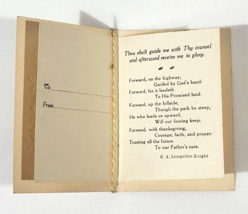 Thou shalt guide me with Thy counsel
and afterward receive me to glory.
To
From
Forward, on the highway,
Guided by God's hand;
Forward, for it leadeth
To His Promised land.
Forward, up the hillside,
Though the path be steep,
He who leads us upward,
Will our footing keep.
Forward, with thanksgiving,
Courage, faith, and prayer;
Trusting all the future
To our Father's care.
E. A. Lempriere Knight